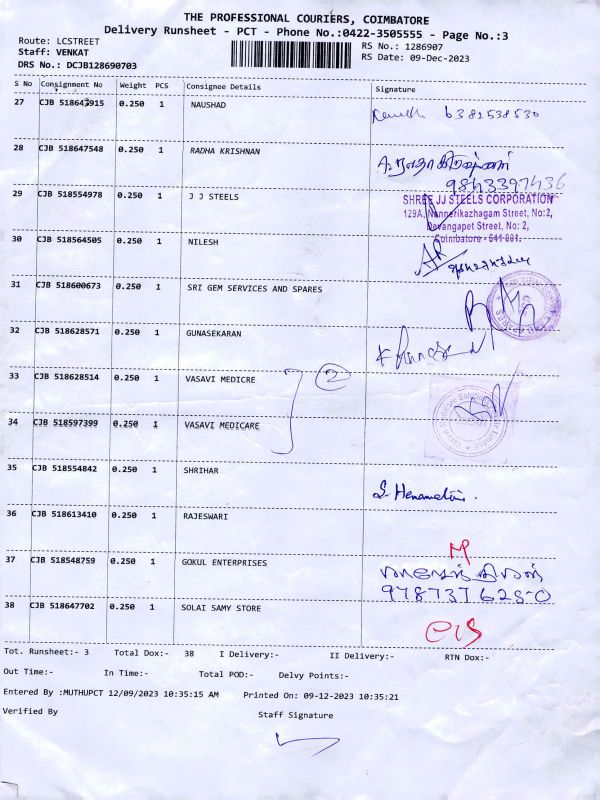 THE PROFESSIONAL COURIERS, COIMBATORE
Delivery Runsheet - PCT - Phone No.:0422-3505555 - Page No.:3
Route: LCSTREET
RS No.: 1286907
Staff: VENKAT
RS Date: 09-Dec-2023
DRS No.: DCJB128690703
S No Consignment No Weight PCS Consignee Details Signature
27 CJB 518643915 0.250 1 NAUSHAD 6382538530
28 CJB 518647548 0.250 1 RADHA KRISHNAN
9843397436
29 CJB 518554978 0.250 1 J J STEELS SHREE JJ STEELS CORPORATION
129A, Nannerikazhagam Street, No:2,
Devangapet Street, No: 2,
Coimbatore - 641 001.
30 CJB 518564505 0.250 1 NILESH
31 CJB 518600673 0.250 1 SRI GEM SERVICES AND SPARES
32 CJB 518628571 0.250 1 GUNASEKARAN
33 CJB 518628514 0.250 1 VASAVI MEDICRE 2
34 CJB 518597399 0.250 1 VASAVI MEDICARE
35 CJB 518554842 0.250 1 SHRIHAR
36 CJB 518613410 0.250 1 RAJESWARI
37 CJB 518548759 0.250 1 GOKUL ENTERPRISES
38 CJB 518647702 0.250 1 SOLAI SAMY STORE
Tot. Runsheet:- 3 Total Dox:- 38 I Delivery:- II Delivery:- RTN Dox:-
Out Time:- In Time:- Total POD:- Delvy Points:-
Entered By :MUTHUPCT 12/09/2023 10:35:15 AM Printed On: 09-12-2023 10:35:21
Verified By Staff Signature